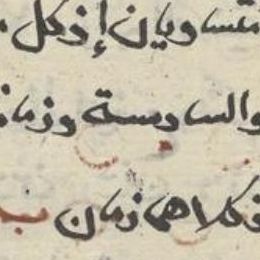 متساويان إذ كل
والسادسة وزمان
فكلاهما زمان